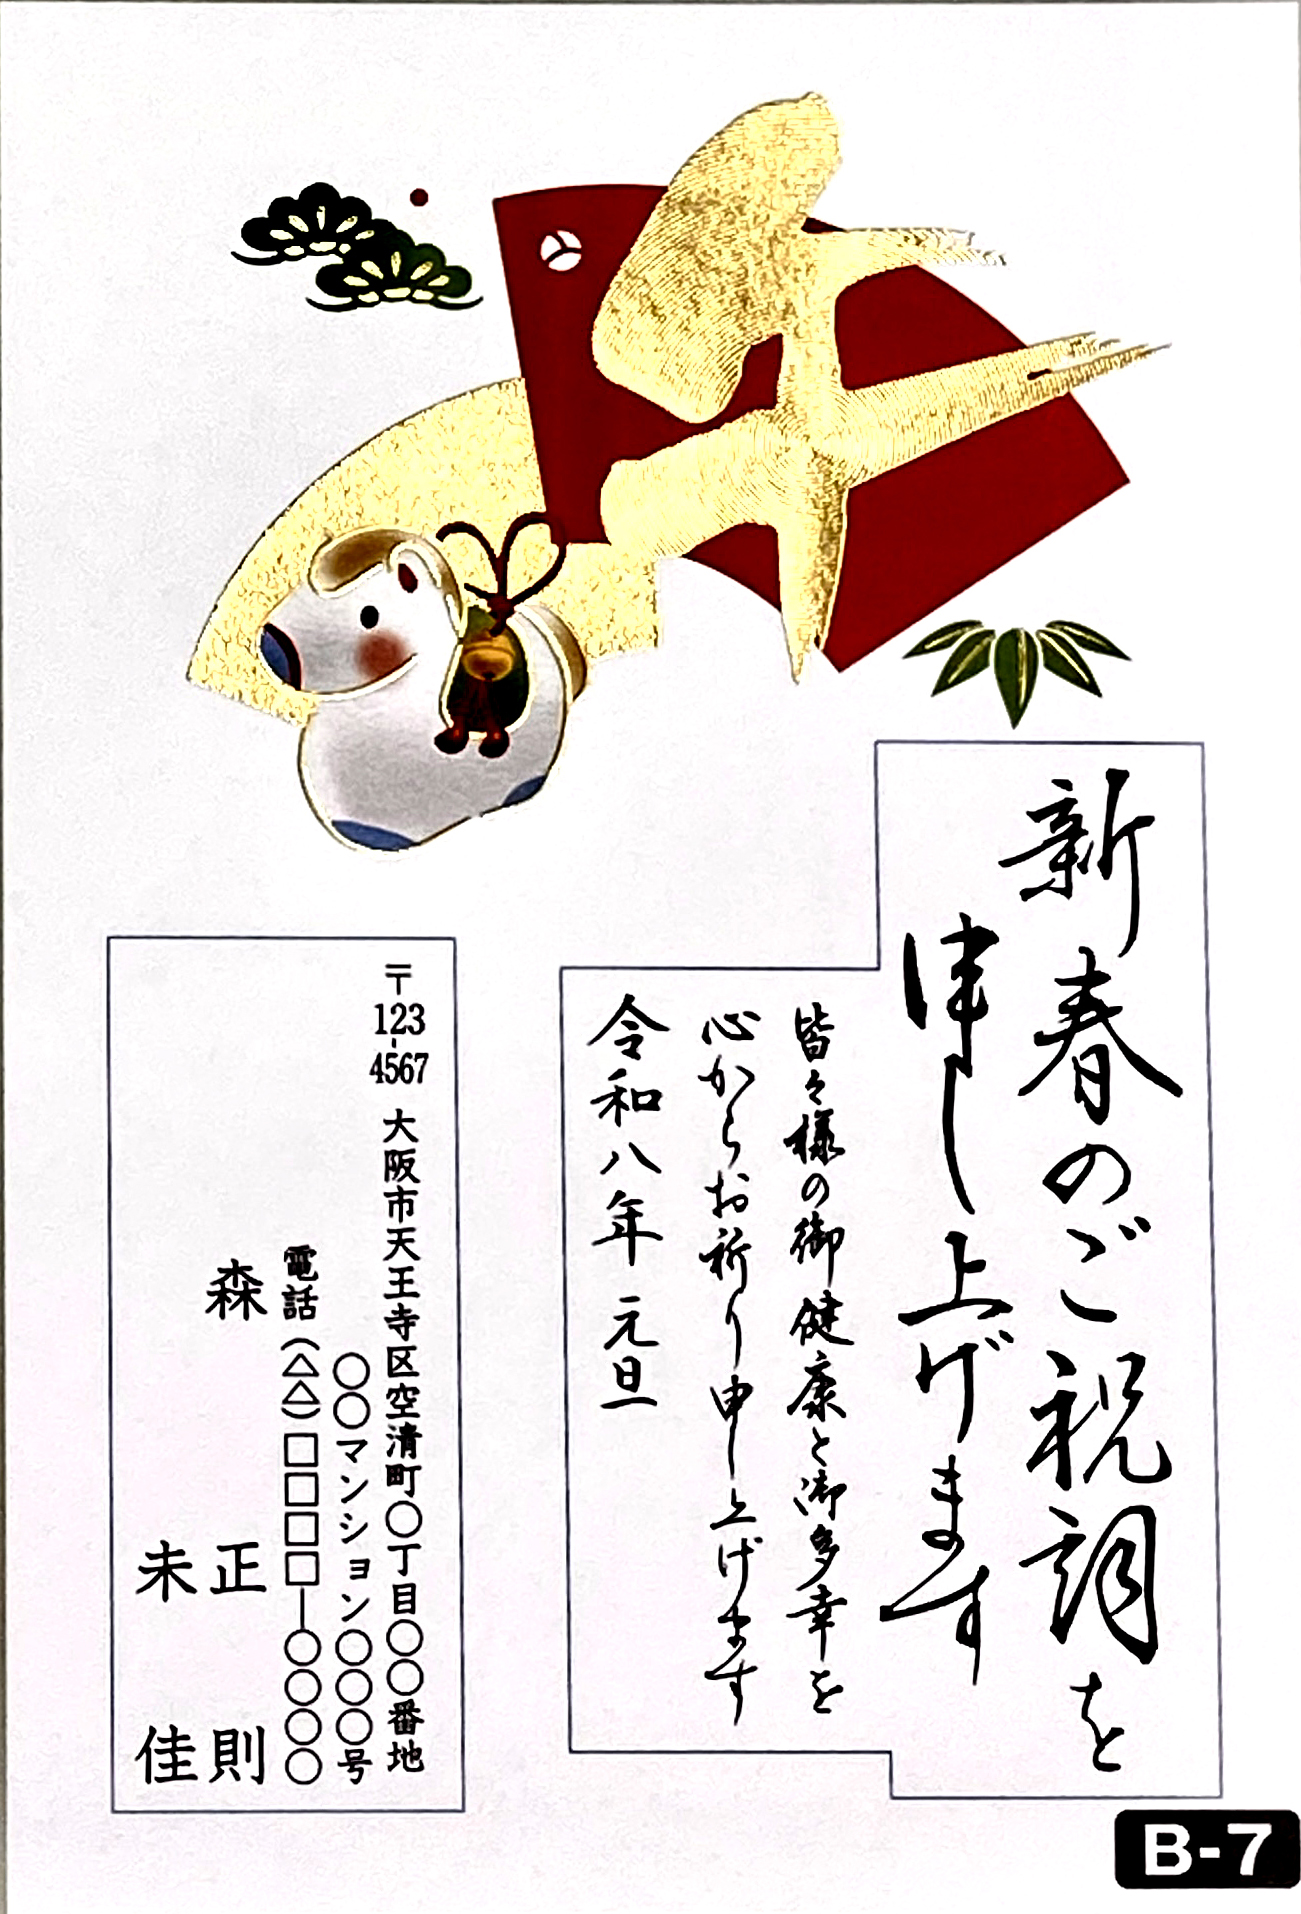 新春のご祝詞を
申し上げます
皆々様の御健康と御多幸を
心からお祈り申し上げます
令和八年 元旦
〒123-4567 大阪市天王寺区空清町〇丁目〇〇番地
〇〇マンション〇〇〇号
電話(△△)□□□□―〇〇〇〇
森 正則
未佳
B-7